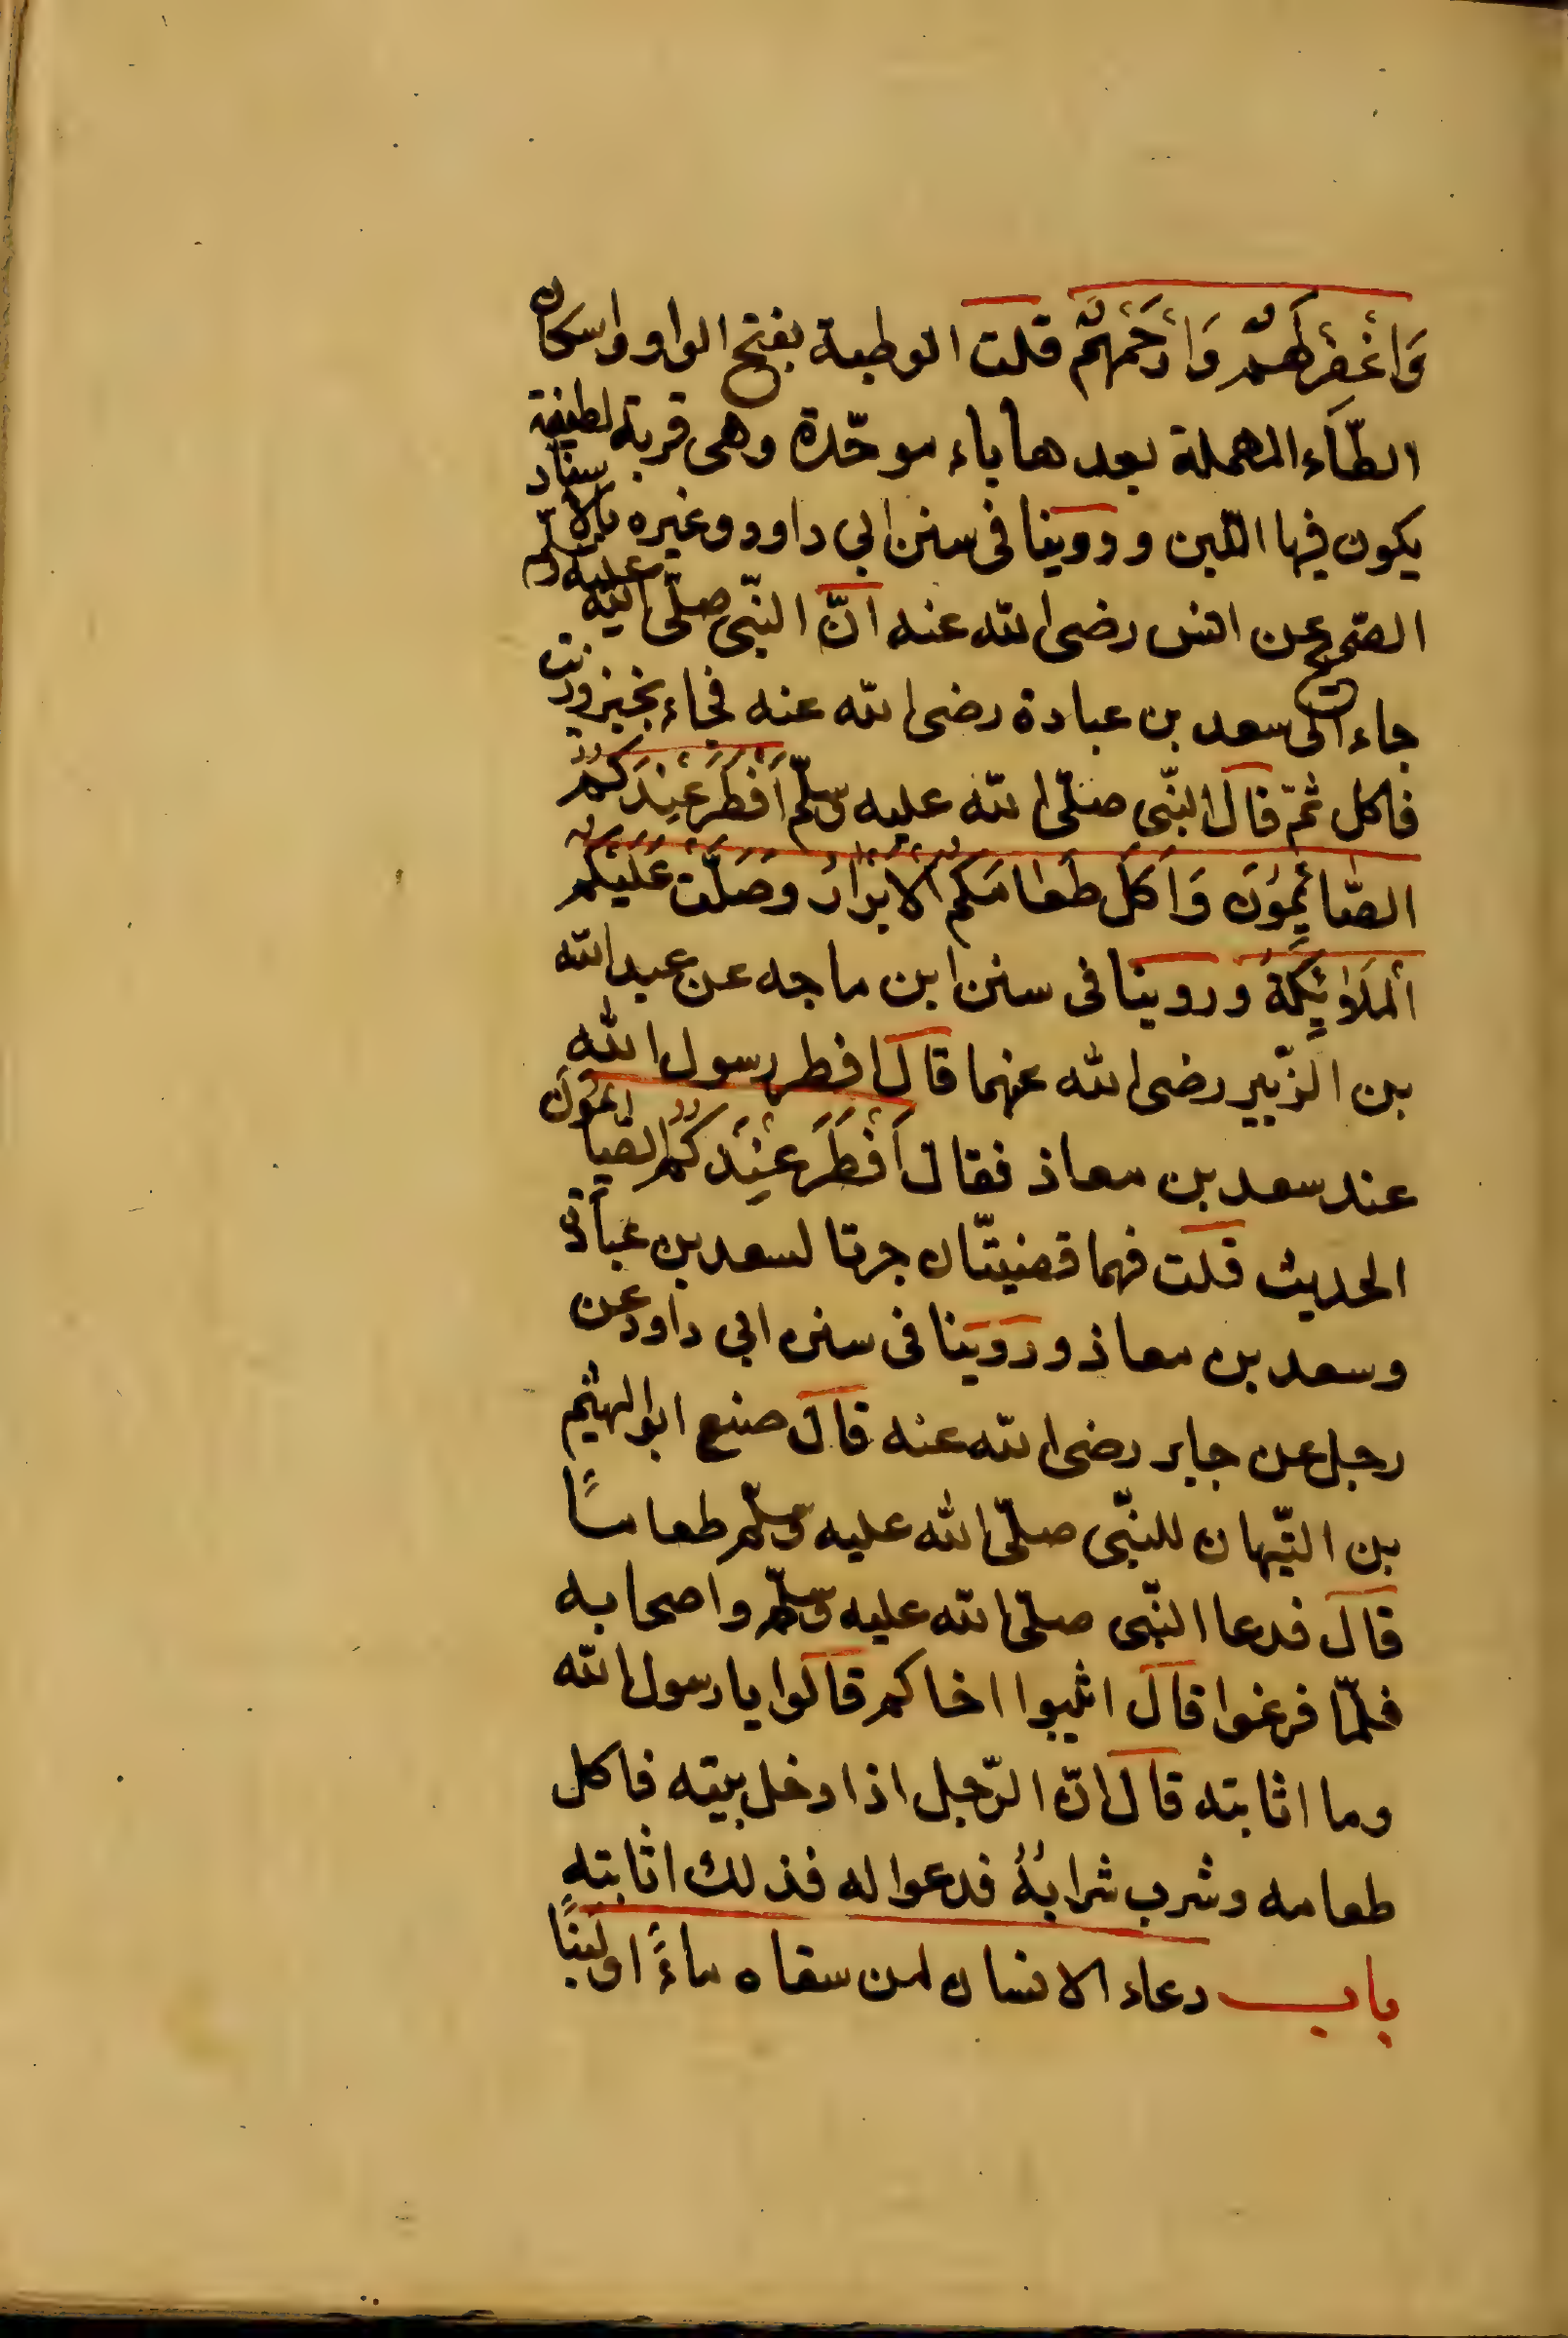 وَاغْفِرْ لَهُمْ وَارْحَمْهُمْ قلت الوطبة بفتح الواو واسكان
الطّاَء المهملة بعدها باء موحّدة وهى قربة لطيفة
يكون فيها اللّبن ورَوَينا فى سنن ابى داود وغيره بالاسناد
الصّحيح عن انس رضى الله عنه انّ النّبى صلّى الله عليه وسلّم
جاء الى سعد بن عبادة رضى الله عنه فجاء بخبز وزيت
فاكل ثمّ قال النّبى صلّى الله عليه وسلّم اَفْطَرَ عِنْدَكُمُ
الصّٰائِمُوُنَ وَاَكَلَ طَعٰامَكُمُ الْاَبْرٰارُ وَصَلَّتْ عَلَيْكُمُ
اْلمَلٰاۤئِكَةُ وروينا فى سنن ابن ماجه عن عبد الله
بن الزّبير رضى الله عنهما قال افطر رسول الله
عند سعد بن معاذ فقال اَفْطَرَ عِنْدَكُمُ الصّٰائِمُوُنَ
الحديث قلت فهما قضيّتان جرتا لسعد بن عبادة
وسعد بن معاذ ورَوَينا فى سنن ابى داود عن
رجل عن جابر رضى الله عنه قال صنع ابو الهيثم
بن التّيهان للنّبى صلّى الله عليه وسلّم طعاماً
قال فدعا النّبى صلّى الله عليه وسلّم واصحابه
فلمّا فرغوا قال اثيبوا اخاكم قالوا يا رسول الله
وما اثابته قال انّ الرّجل اذا دخل بيته فاكل
طعامه وشرب شرابُهُ فدعوا له فذلك اثابته
باب دعاء الانسان لمن سقاه ماءً او لبنًا